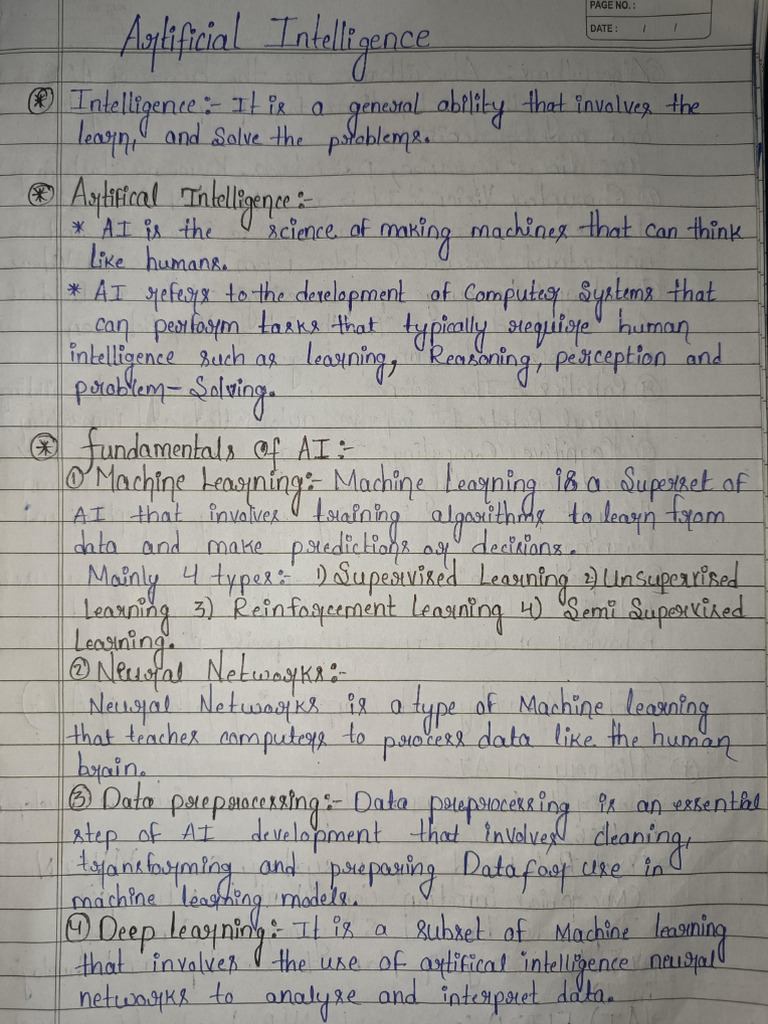 PAGE NO.:
DATE: / /
Artificial Intelligence
* Intelligence:- It is a general ability that involves the
learn, and Solve the problems.
* Artifical Intelligence:-
* AI is the science of making machines that can think
like humans.
* AI refers to the development of Computer Systems that
can perform tasks that typically require human
intelligence such as learning, Reasoning, perception and
problem-Solving.
* fundamentals of AI:-
① Machine Learning:- Machine Learning is a Superset of
AI that involves training algorithms to learn from
data and make predictions or decisions.
Mainly 4 types:- 1) Supervised Learning 2) Unsupervised
Learning 3) Reinforcement Learning 4) Semi Supervised
Learning.
② Neural Networks:-
Neural Networks is a type of Machine learning
that teaches computers to process data like the human
brain.
③ Data preprocessing:- Data preprocessing is an essential
step of AI development that involves cleaning,
transforming and preparing Data for use in
machine learning models.
④ Deep learning:- It is a subset of Machine learning
that involves the use of artifical intelligence neural
networks to analyze and interpret data.